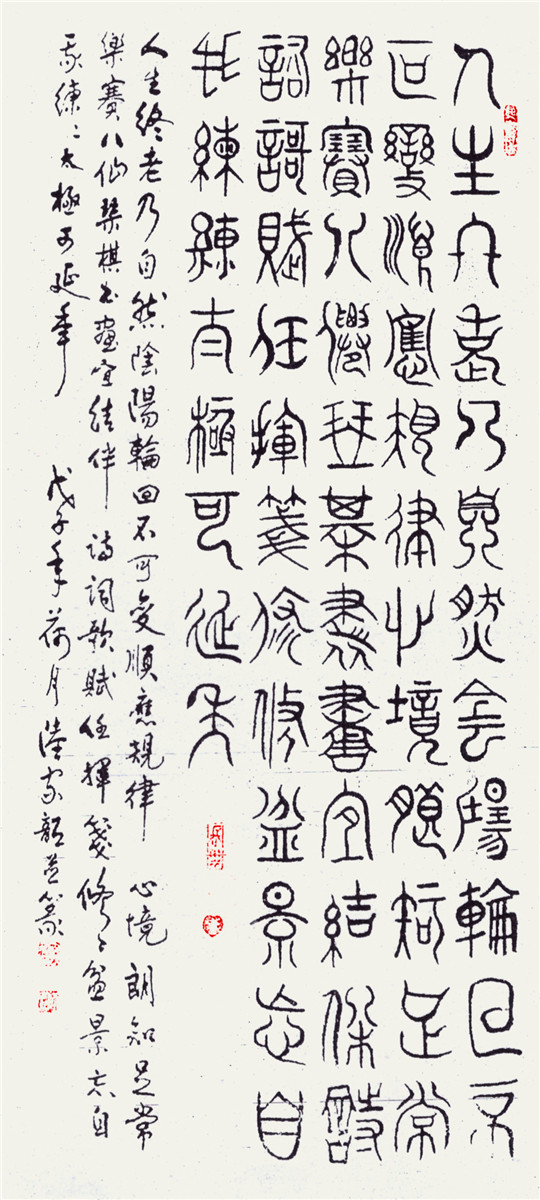 人生終老乃自然陰陽輪回不
可變順應規律心境朗知足常
樂賽八僊琴棊書畫宜結伴詩
詞謌賦任揮箋修修盆景忘自
我練練太極可延年
人生終老乃自然陰陽輪回不可变順應規律 心境朗知足常
樂賽八仙琴棋书畫宜結伴 詩詞歌賦任揮箋修〻盆景忘自
我練〻太極可延年 戊子年荷月陸家韶並篆